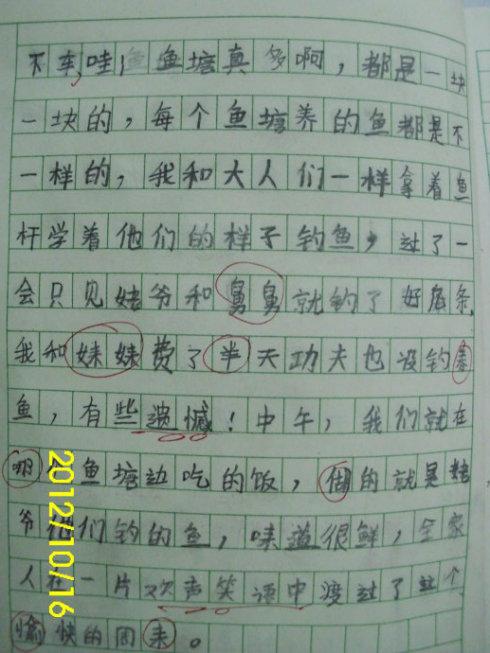 下车,哇!鱼鱼塘真多啊，都是一块
一块的，每个鱼塘养的鱼都是不
一样的，我和大人们一样拿着鱼
杆学着他们的样子钓鱼，过了一
会只见姥爷和舅舅就钓了好底条
我和妹妹费了半天功夫也没钓着
鱼，有些遗憾！中午，我们就在
那个鱼塘边吃的饭，做的就是姥
爷他们钓的鱼，味道很鲜，全家
人在一片欢声笑语中渡过了这个
愉快的周末。
2012/10/16